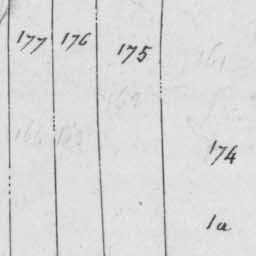 177 176 175
174
1a